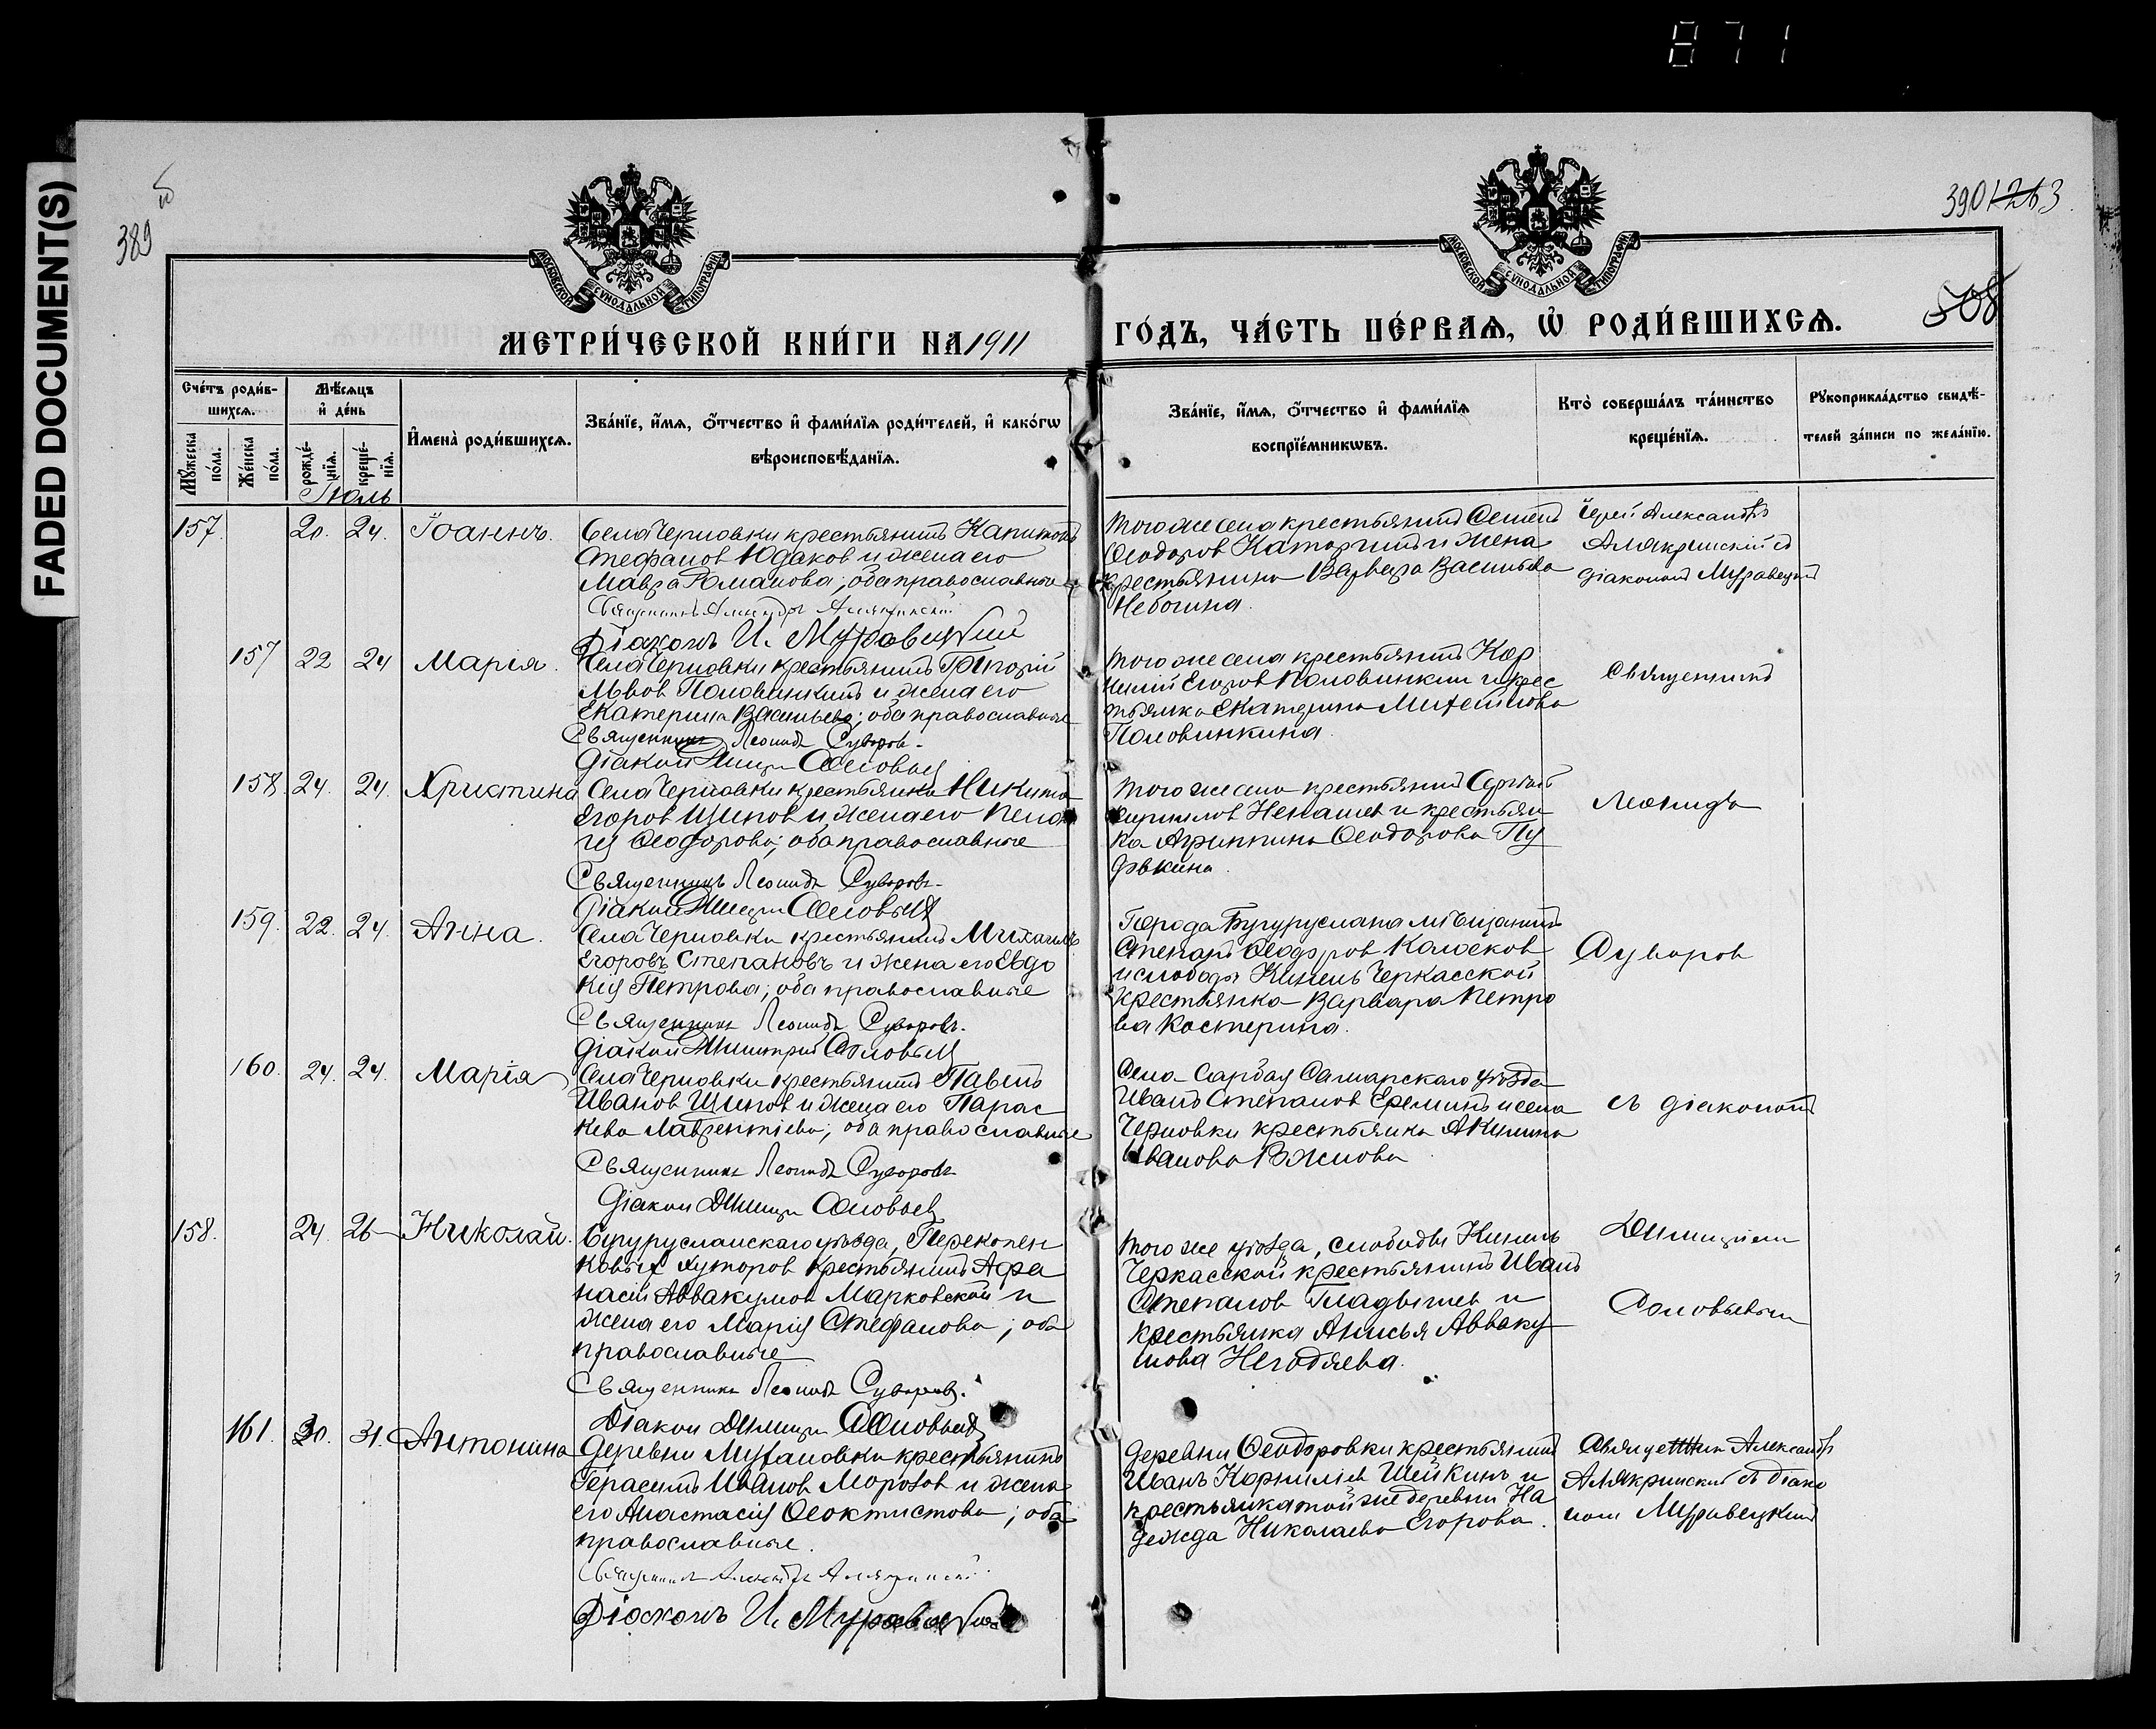 871
FADED DOCUMENT(S)
389 об
390 1263
508
МОСКОВСКОЙ СѴНОДАЛЬНОЙ ТИПОГРАФІИ
МОСКОВСКОЙ СѴНОДАЛЬНОЙ ТИПОГРАФІИ
МЕТРИ́ЧЕСКОЙ КНИ́ГИ НА 1911
ГО́ДЪ, ЧА́СТЬ ПЕ́РВАѦ, Ѡ҆ РОДИ́ВШИХСѦ.
Сче́тъ роди́в-
шихсѧ.
Мꙋ́жеска по́ла.
Же́нска по́ла.
Мѣ́сѧцъ
и҆ де́нь
рожде́-
нїѧ.
креще́-
нїѧ.
И҆мена̀ роди́вшихсѧ.
Зва́нїе, и҆́мѧ, ѻ҆́тчество и҆ фами́лїѧ роди́телей, и҆ како́гѡ
вѣроисповѣ́данїѧ.
Зва́нїе, и҆́мѧ, ѻ҆́тчество и҆ фами́лїѧ
воспрїе́мникѡвъ.
Кто̀ соверша́лъ та́инство
креще́нїѧ.
Рꙋкоприкла́дство свидѣ́-
телей за́писи по жела́нїю.
Іюль
157. 20. 24. Іоаннъ.
Села Черновки крестьянинъ Капитонъ
Стефанов Юдаков и жена его
Мавра Романова; оба православные
Священникъ Александръ Алякринскій
Діаконъ И. Муравецкий
того же села крестьянинъ Семенъ
Ѳеодоров Каторгинъ и жена
крестьянина Варвара Васильева
Небогина.
Іерей Александръ
Алякринскій съ
діаконом Муравецким
157 22 24 Марія.
Села Черновки крестьянинъ Григорій
Львов Половинкинъ и жена его
Екатерина Васильева; оба православные
Священникъ Леонидъ Суворов.
Діакон Димитрій Соловьев
того же села крестьянинъ Кор
нилій Егоров Половинкин и крес
тьянка Екатерина
Половинкина.
Священникъ
158. 24. 24. Христина
Села Черновки крестьянин Никита
Егоров Щипов и жена его Пела
гія Ѳеодорова; оба православные
Священникъ Леонидъ Суворовъ.
Діакон Димитрій Соловьев
того же села крестьянин Сергій
Кирилов Ненашев и крестьян
ка Агриппина Ѳеодорова Пу
довкина.
Леонидъ
159. 22. 24. Анна.
Села Черновки крестьянин Михаилъ
Егоровъ Степановъ и жена его Евдо
кія Петрова; оба православные
Священникъ Леонидъ Суворовъ.
Діакон Димитрій Соловьев
Города Бугуруслана мѣщанинъ
Степанъ Ѳеодоров Колосков
и слободы Кинель Черкасской
крестьянка Варвара Петро
ва Костерина.
Суворов
160. 24. 24. Марія
Села Черновки крестьянинъ Павелъ
Иванов Щипов и жена его Парас
кева Лаврентіева; оба православные
Священникъ Леонидъ Суворовъ
Діакон Димитрій Соловьев
Села Сарбай Самарскаго уѣзда
Иванъ Степанов Ереминъ и села
Черновки крестьянка Акилина
Иванова
съ діакономъ
158. 24. 26 Николай.
Бугурусланскаго уѣзда, Перекопен
ковых хуторов крестьянинъ Афа
насій Аввакумов Марковской и
жена его Марія Стефанова; оба
православные
Священникъ Леонидъ Суворовъ.
Діакон Димитрій Соловьев
того же уѣзда, слободы Кинель
Черкасской крестьянинъ Иванъ
Степанов Гладышев и
крестьянка Анисья Авваку
мова Негодяева.
Димитріем
Соловьевым
161. 30. 31. Антонина
Деревни Мухановки крестьянинъ
Герасимъ Иванов Морозов и жена
его Анастасія Ѳеоктистова; оба
православные.
Священникъ Александръ Алякринскій
Діаконъ И. Муравецкий
деревни Ѳеодоровки крестьянинъ
Иванъ Корниліев Шейкинъ и
крестьянка той же деревни На
дежда Николаева Егорова.
Священник Александръ
Алякринский съ діако
ном Муравецким